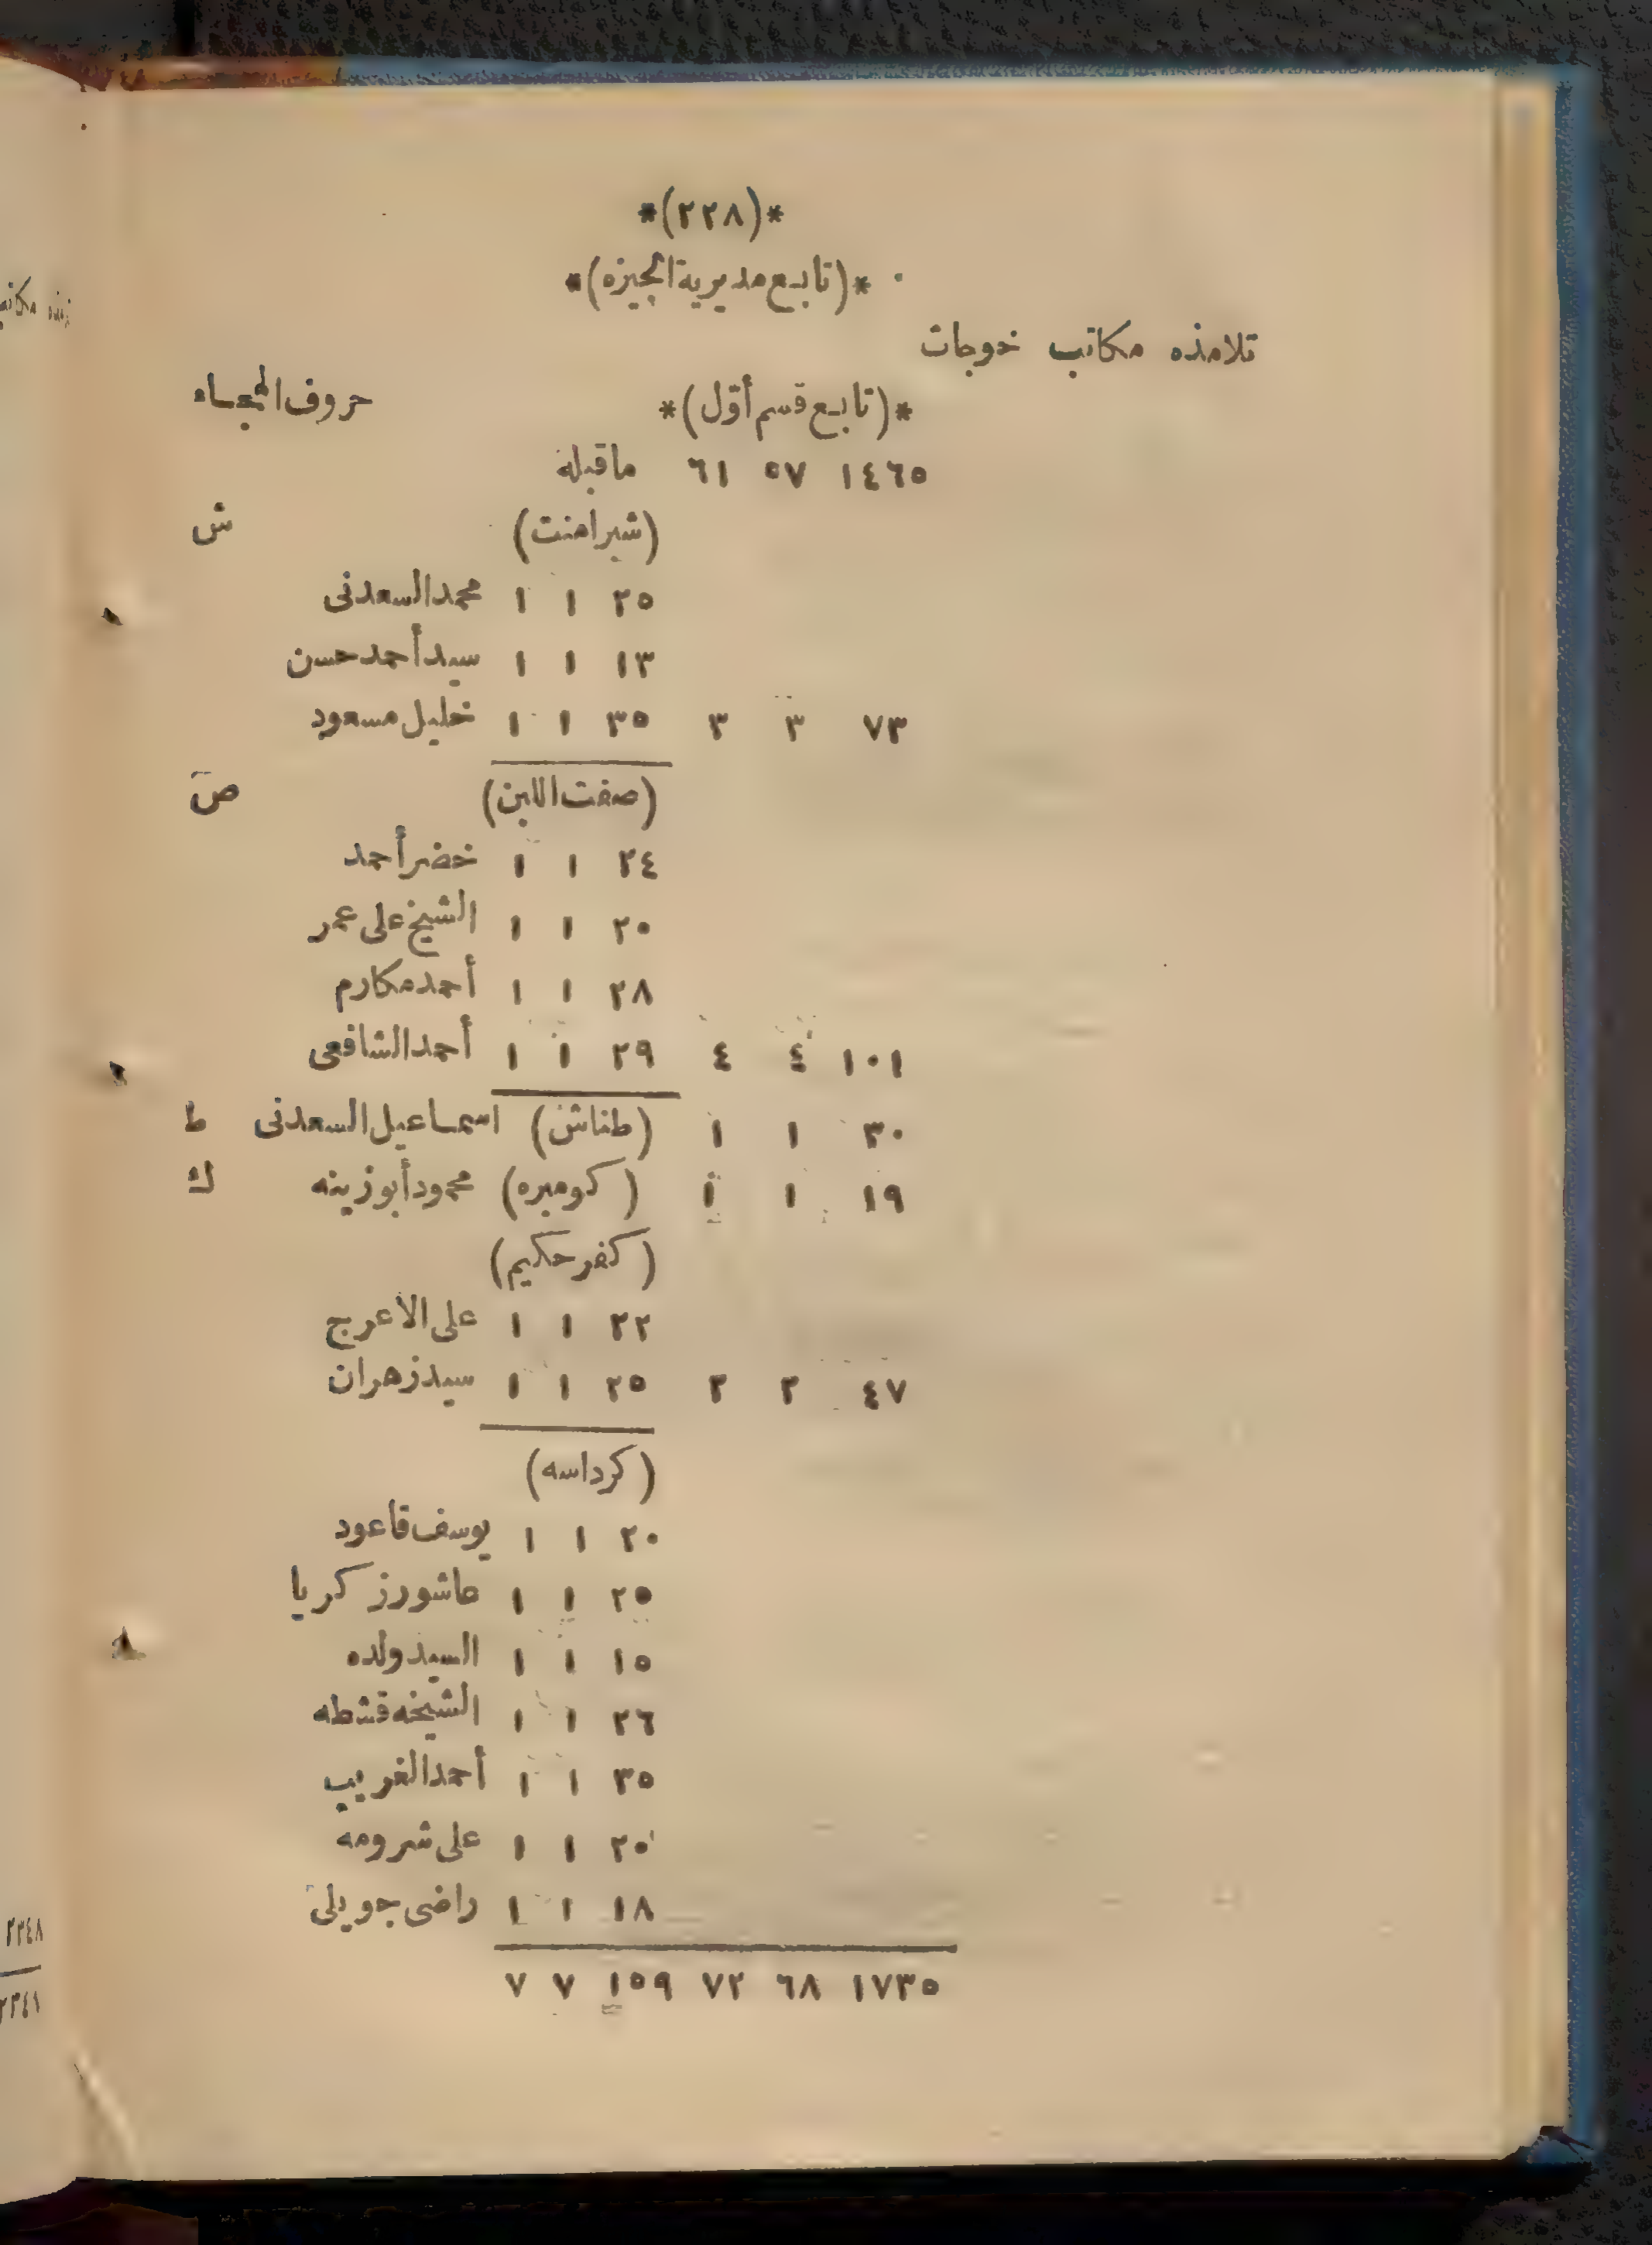 *(٢٢٨)*
*(تابع مديرية الجيزه)*
تلامذه مكاتب خوجات
*(تابع قسم أوّل)* حروف الهجاء
١٤٦٥ ٥٧ ٦١ ماقبله
(شبرامنت) ش
٢٥ ١ ١ محمد السعدنى
١٣ ١ ١ سيد أحمد حسن
٧٣ ٣ ٣ ٣٥ ١ ١ خليل مسعود
(صفت اللبن) ص
٢٤ ١ ١ خضر أحمد
٢٠ ١ ١ الشيخ على عمر
٢٨ ١ ١ أحمد مكارم
١٠١ ٤ ٤ ٢٩ ١ ١ أحمد الشافعى
٣٠ ١ ١ (طناش) اسماعيل السعدنى ط
١٩ ١ ١ (كومبره) محمود أبو زينه ك
(كفر حكيم)
٢٢ ١ ١ على الأعرج
٤٧ ٢ ٢ ٢٥ ١ ١ سيد زهران
(كرداسه)
٢٠ ١ ١ يوسف قاعود
٢٥ ١ ١ عاشور زكريا
١٥ ١ ١ السيد ولده
٢٦ ١ ١ الشيخه قشطه
٣٥ ١ ١ أحمد الغريب
٢٠ ١ ١ على شرومه
١٨ ١ ١ راضى جويلى
١٧٣٥ ٦٨ ٧٢ ١٥٩ ٧ ٧
٢٣٤٨